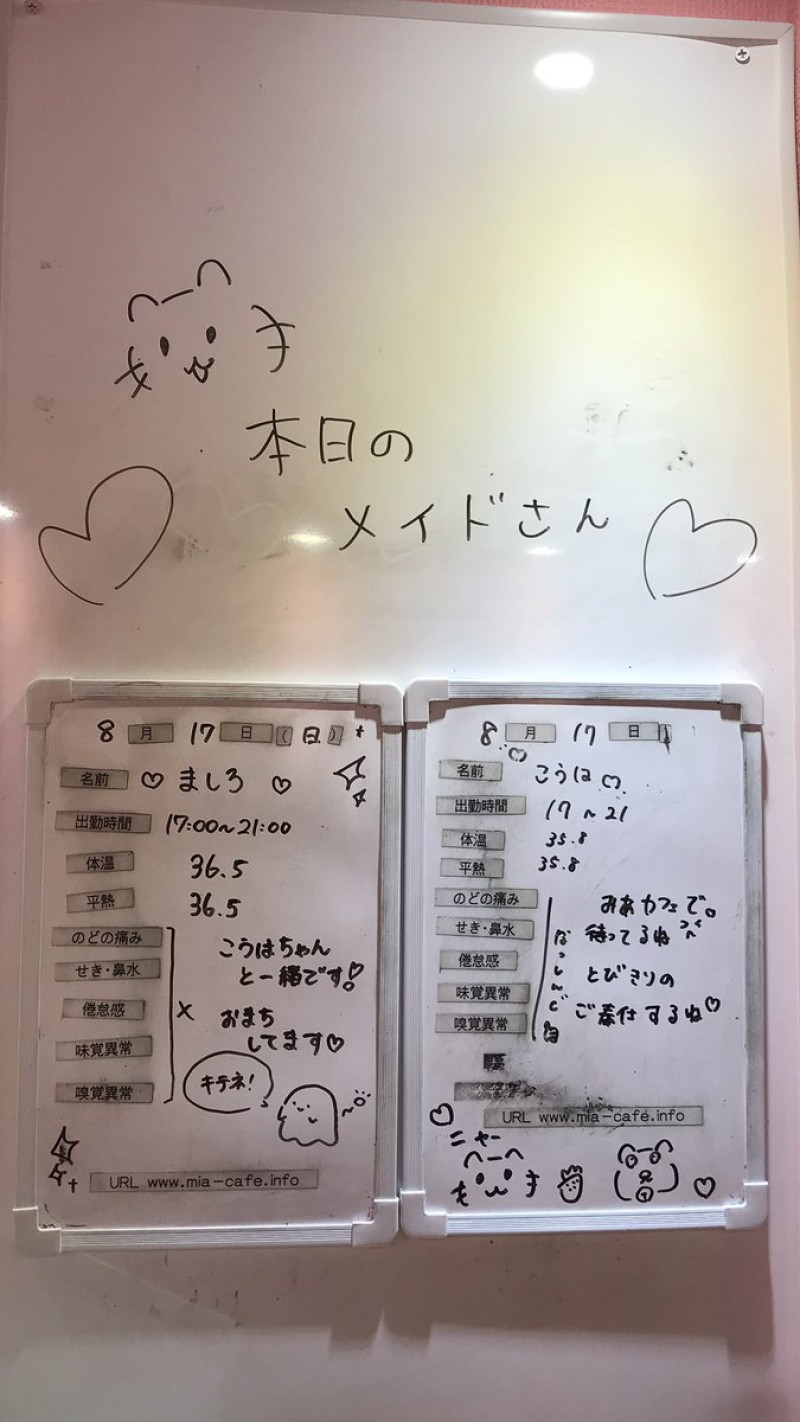 本日の
メイドさん
8月17日(日)
名前 ♡ ましろ ♡
出勤時間 17:00~21:00
体温 36.5
平熱 36.5
のどの痛み
せき・鼻水
倦怠感 ×
味覚異常
嗅覚異常
こうはちゃん
と一緒です!
おまち
してます♡
キテネ!
URL www.mia-cafe.info
8月17日
名前 こうは
出勤時間 17~21
体温 35.8
平熱 35.8
のどの痛み
せき・鼻水
倦怠感
味覚異常
嗅覚異常
なっしんぐ
みあカフェで。
待ってるね
とびきりの
ご奉仕するね♡
URL www.mia-cafe.info
ニャー